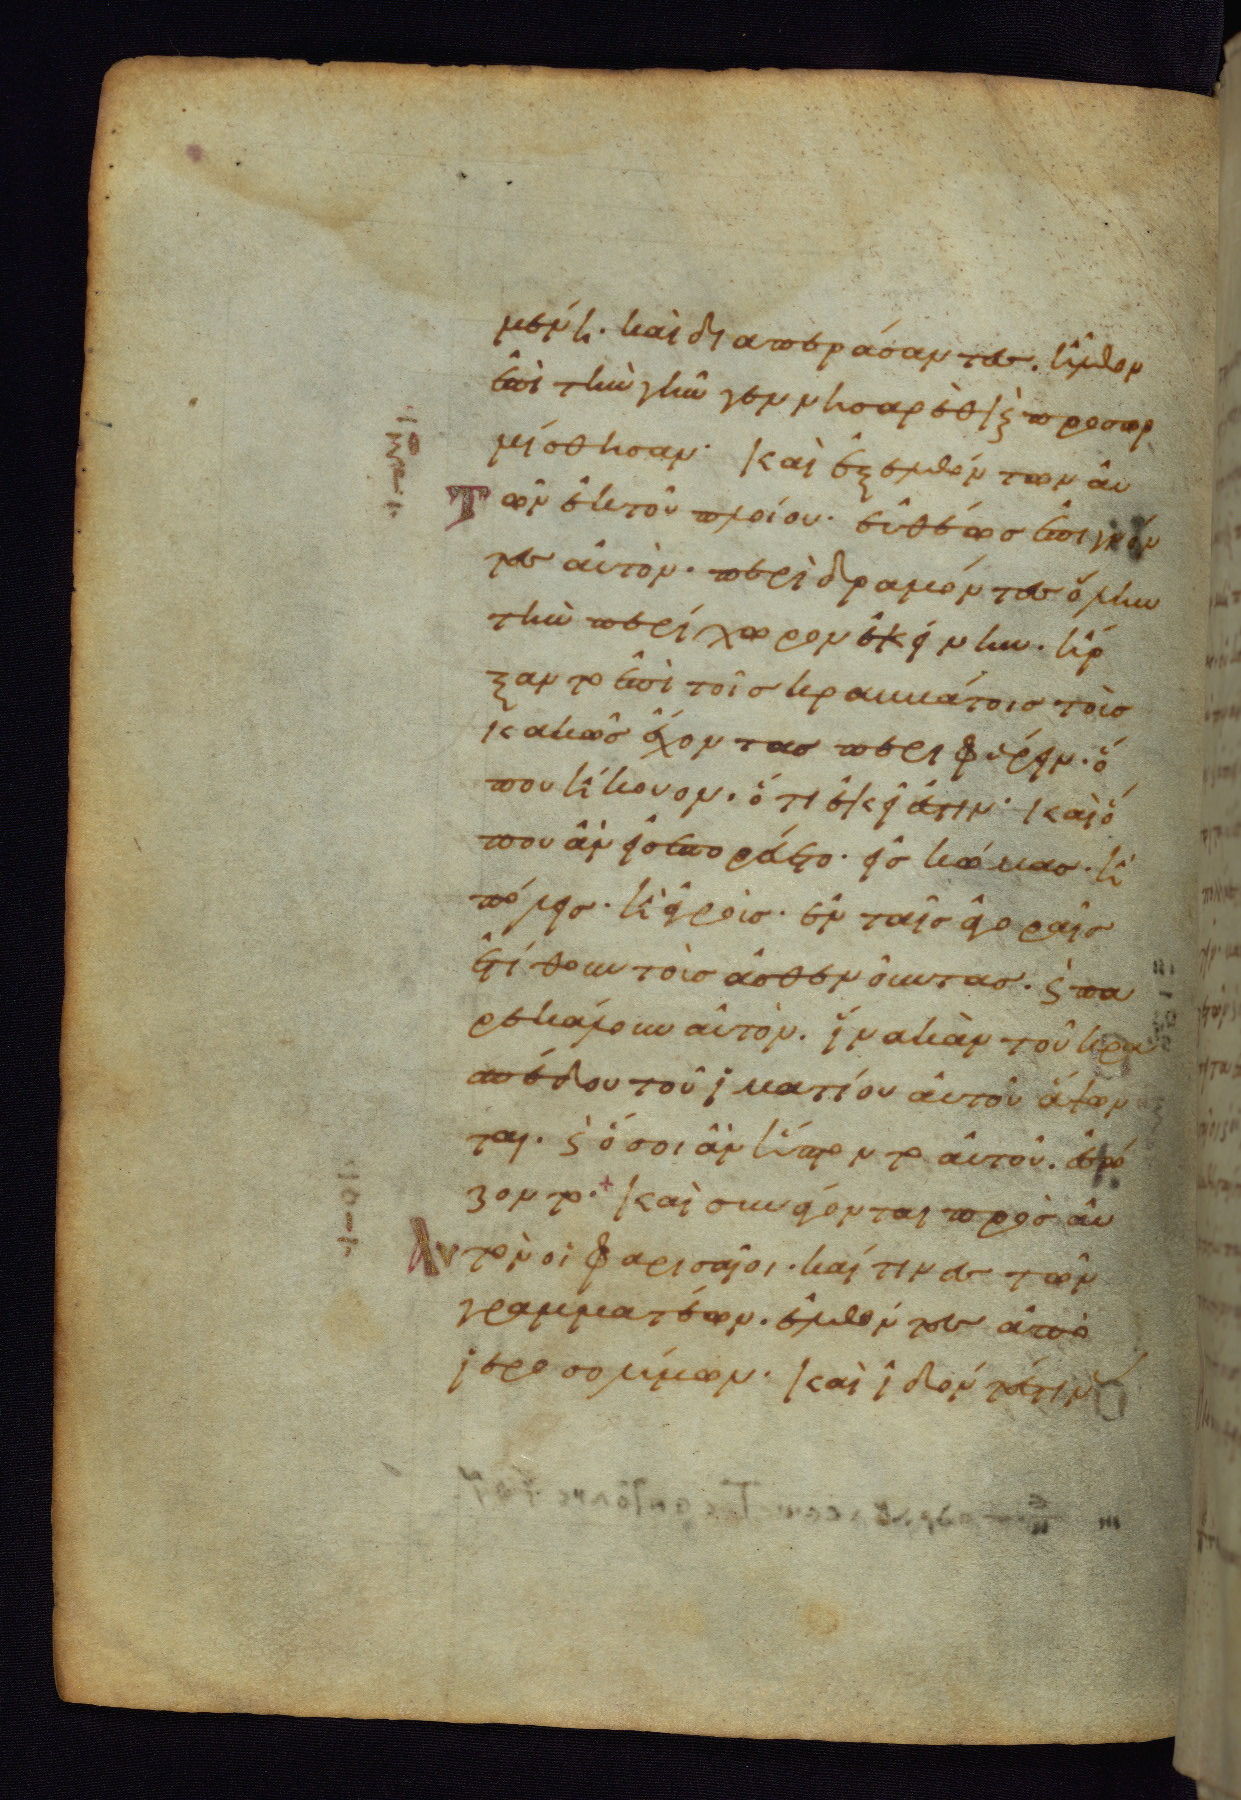 μένη. καὶ διαπεράσαντες. ἦλθον
ἐπὶ τὴν γῆν γεννησαρὲθ κ προσωρ
μίσθησαν. Καὶ ἐξελθόντων αὐ
τῶν ἐκ τοῦ πλοίου. εὐθέως ἐπιγνόν
τες αὐτὸν. περιδραμόντες ὅλην
τὴν περίχωρον ἐκείνην. ἤρ
ξαντο ἐπὶ τοῖς κραμμάτοις τοὺς
κακῶς ἔχοντας περιφέρειν. ὅ
που ἤκουον. ὅτι ἐκεῖ ἐστιν. Καὶ ὅ
που ἂν εἰσεπορεύετο. εἰς κώμας. ἢ
πόλεις. ἢ ἀγροὺς. ἐν ταῖς ἀγοραῖς
ἐτίθουν τοὺς ἀσθενοῦντας. κ πα
ρεκάλουν αὐτὸν. ἵνα κἂν τοῦ κρα
σπέδου τοῦ ἱματίου αὐτοῦ ἅψων
ται. κ ὅσοι ἂν ἥπτοντο αὐτοῦ. ἐσώ
ζοντο. + Καὶ συνάγονται πρὸς αὐ
τὸν οἱ φαρισαῖοι. καί τινες τῶν
γραμματέων. ἐλθόντες ἀπὸ
ἱεροσολύμων. Καὶ ἰδόντες τιν